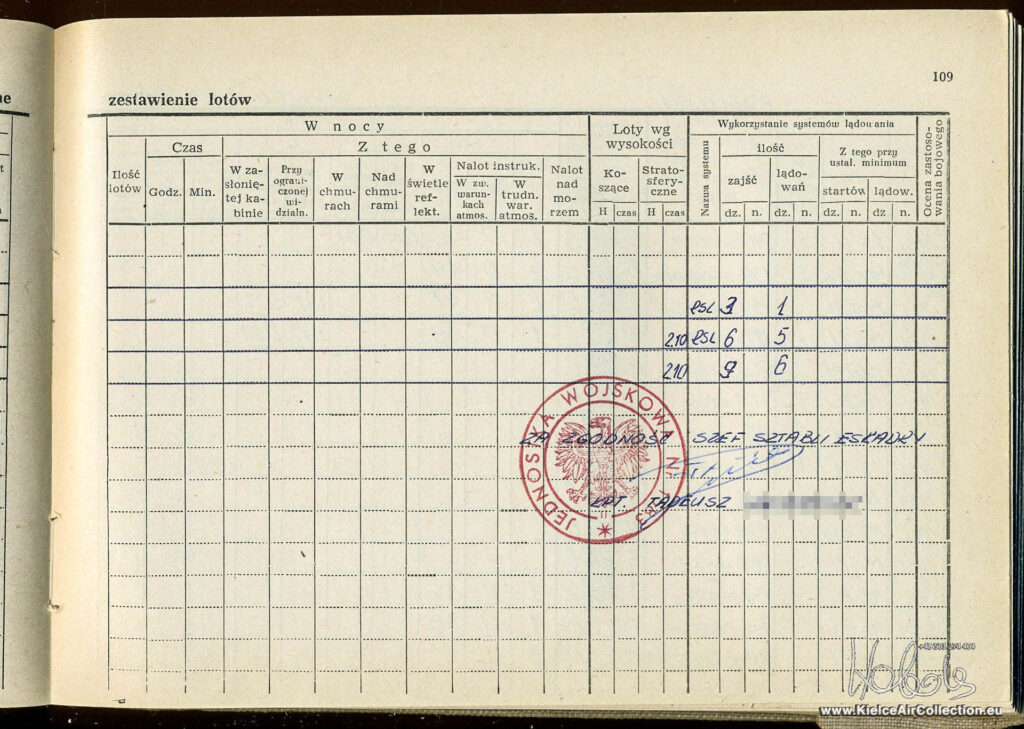 109
ne
zestawienie lotów
W nocy
Ilość lotów
Czas
Godz.
Min.
Z tego
W zasłoniętej kabinie
Przy ograniczonej widzialn.
W chmurach
Nad chmurami
W świetle reflekt.
Nalot instruk.
W zw. warunkach atmos.
W trudn. war. atmos.
Nalot nad morzem
Loty wg wysokości
Koszące
Stratosferyczne
H czas H czas
Wykorzystanie systemów lądowania
Nazwa systemu
ilość
zajść
lądowań
dz. n. dz. n.
Z tego przy ustal. minimum
startów lądow.
dz. n. dz n.
Ocena zastosowania bojowego
RSL 3 1
210 RSL 6 5
210 9 6
JEDNOSTKA WOJSKOWA Nr
ZA ZGODNOŚĆ SZEF SZTABU ESKADRY
KPT. TADEUSZ
+48 503 074 404
www.KielceAirCollection.eu